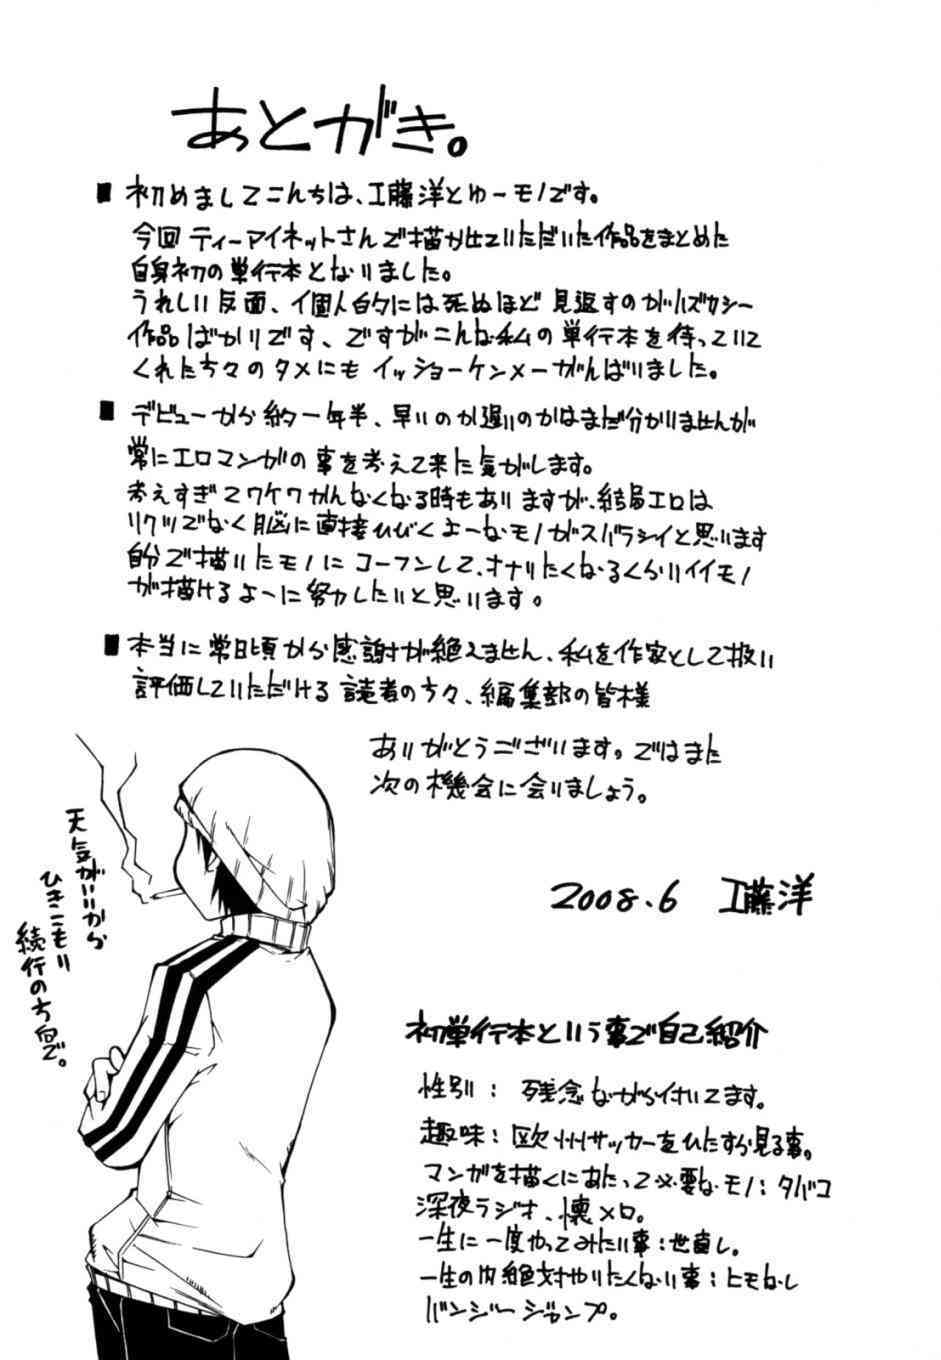 あとがき。
■ 初めましてこんちは、工藤洋とゆーモノです。
今回 ティーアイネットさんで描かせていただいた作品をまとめた
自身初の単行本となりました。
うれしい反面、個人的には死ぬほど見返すのがハズカシー
作品ばかりです、ですがこんな私の単行本を待っていて
くれた方々のタメにも イッショーケンメーがんばりました。
■ デビューから約一年半、早いのか遅いのかはまだ分かりませんが
常にエロマンガの事を考えて来た気がします。
考えすぎてワケワかんなくなる時もありますが、結局エロは
リクツでなく脳に直接ひびくよーなモノがスバラシイと思います
自分で描いたモノにコーフンして、オナりたくなるくらいイイモノ
が描けるよーに努力したいと思います。
■ 本当に常日頃から感謝が絶えません、私を作家として扱い
評価していただける読者の方々、編集部の皆様
ありがとうございます。ではまた
次の機会に会いましょう。
天気がいいから
ひきこもり
続行の方向で。
2008.6 工藤洋
初単行本という事で自己紹介
性別: 残念ながら付いてます。
趣味: 欧州サッカーをひたすら見る事。
マンガを描くにあたって必要なモノ: タバコ
深夜ラジオ、懐メロ。
一生に一度やってみたい事: 世直し。
一生の内絶対やりたくない事: ヒモなし
バンジージャンプ。